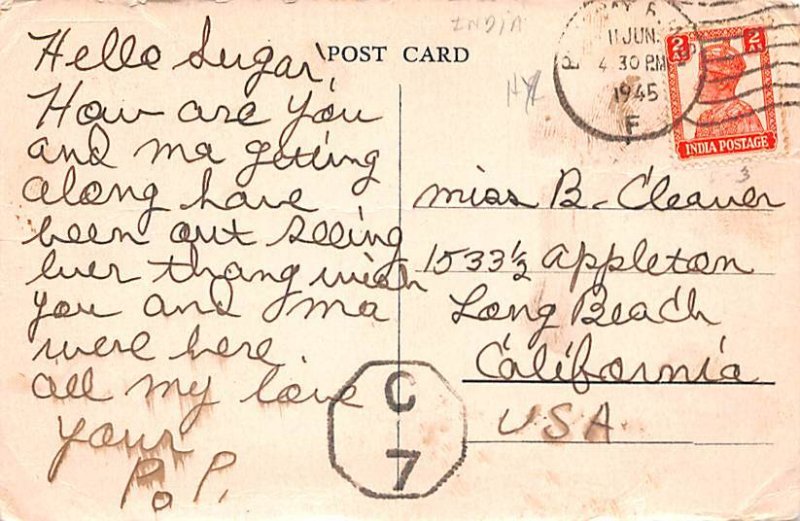 POST CARD
INDIA
11 JUN.
4 30 PM
1945
F
2
INDIA POSTAGE
3
Hello Sugar,
How are you
and ma getting
along have
been out seeing
ever thang wish
you and ma
were here.
all my love
your
PoP.
C
7
miss B. Cleaver
1533½ Appleton
Long Beach
California
USA